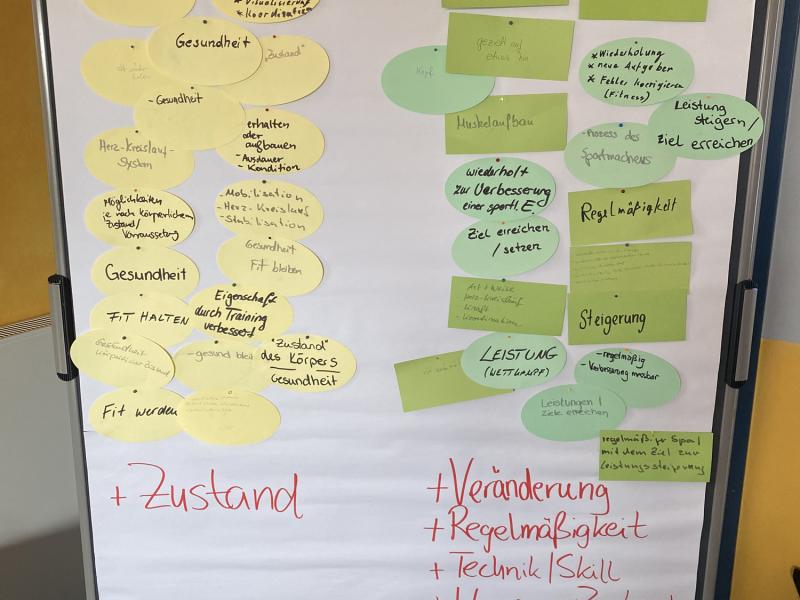 * Koordination
Gesundheit
"Zustand"
- Gesundheit
erhalten
oder
aufbauen
- Ausdauer
- Kondition
Herz-Kreislauf-
System
Möglichkeiten
je nach körperlichem
Zustand/
Vorraussetzung
- Mobilisation
- Herz-Kreislauf
- Stabilisation
Gesundheit
Fit bleiben
Gesundheit
FIT HALTEN
Eigenschaft
durch Training
verbessert
Gesundheit
körperlicher Zustand
- gesund bleib
"Zustand"
des Körpers
Gesundheit
Fit werden
+ Zustand
gezielt auf
etwas hin
Kopf
* Wiederholung
* neue Aufgaben
* Fehler korrigieren
(Fitness)
Muskelaufbau
Leistung
steigern /
Ziel erreichen
- Prozess des
Sportmachens
wiederholt
zur Verbesserung
einer sportl. E.
Regelmäßigkeit
Ziel erreichen
/ setzen
Art + Weise
- Herz-Kreislauf
- Kraft
- Koordination
Steigerung
LEISTUNG
(WETTKAMPF)
- regelmäßig
- Verbesserung messbar
Leistungen /
Ziele erreichen
regelmäßiger Sport
mit dem Ziel zur
Leistungssteigerung
+ Veränderung
+ Regelmäßigkeit
+ Technik/Skill